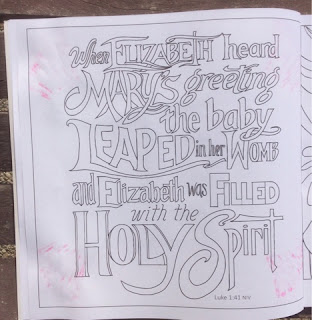 When ELIZABETH heard
MARY'S greeting
the baby
LEAPED in her WOMB
and Elizabeth was FILLED
with the
HOLY Spirit
Luke 1:41 NIV